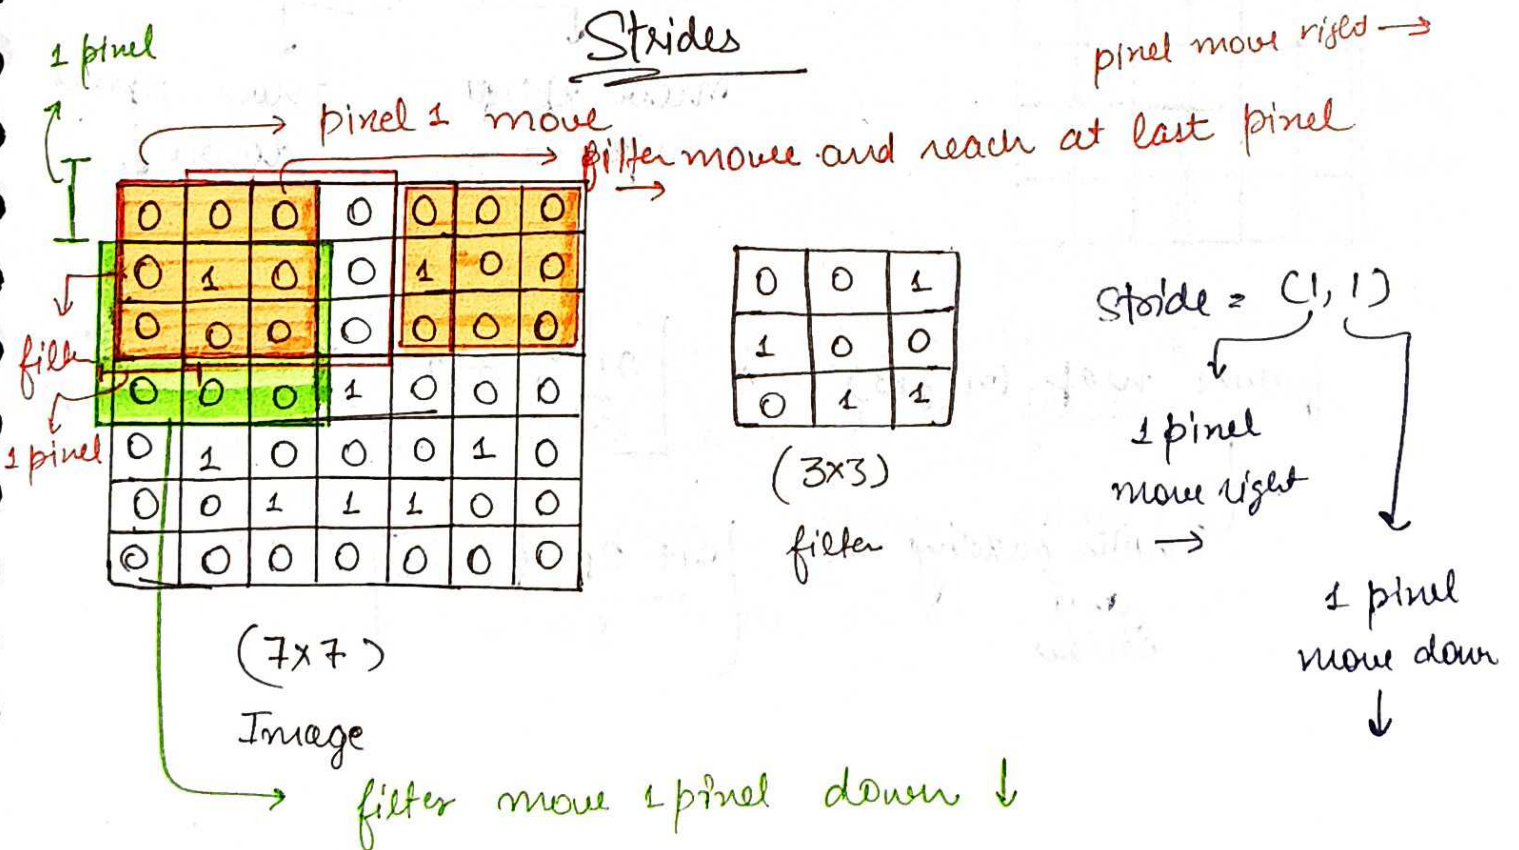 Strides
1 pixel
pixel move right →
pixel 1 move
filter move and reach at last pixel →
0 0 0 0 0 0 0
0 1 0 0 1 0 0
0 0 0 0 0 0 0
0 0 0 1 0 0 0
0 1 0 0 0 1 0
0 0 1 1 1 0 0
0 0 0 0 0 0 0
filter
1 pixel
(7x7)
Image
0 0 1
1 0 0
0 1 1
(3x3)
filter
Stride = (1, 1)
1 pixel
move right
→
1 pixel
move down
↓
filter move 1 pixel down ↓